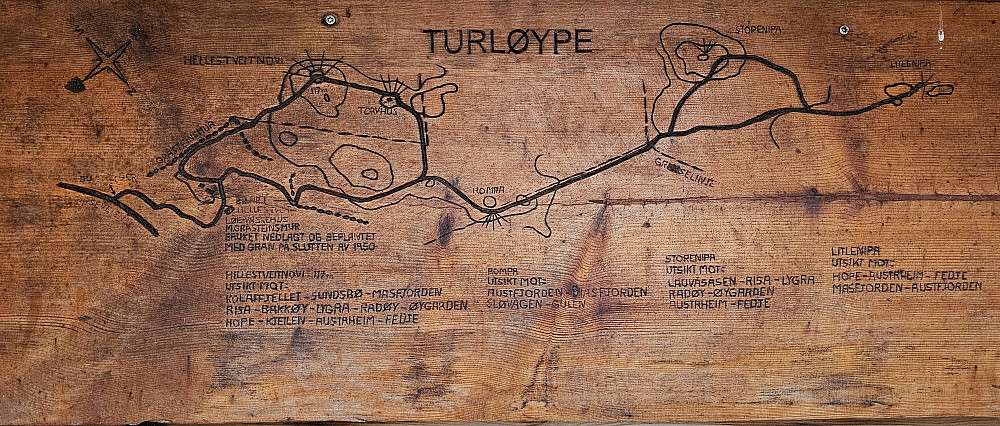 TURLØYPE
STORENIPA
HELLESTVEITNOVI
117m
LITLENIPA
TORVHUS
GRASTEINSMUR
GRENSELINJE
ROMPA
HELLESTVEIT
LØE-VASKEHUS
M.GRASTEINSMUR
BRUKET NEDLAGT OG BEPLANTET
MED GRAN PÅ SLUTTEN AV 1950
HELLESTVEITNOVI 117m
UTSIKT MOT:
KOLAFFJELLET - SUNDSBØ - MASFJORDEN
RISA - BAKKØY - LYGRA - RADØY - ØYGARDEN
HOPE - KJEILEN - AUSTRHEIM - FEDJE
ROMPA
UTSIKT MOT:
AUSTFJORDEN - MASFJORDEN
SLØVAGEN - GULEN
STORENIPA
UTSIKT MOT:
LAUVASASEN - RISA - LYGRA
RADØY - ØYGARDEN
AUSTRHEIM - FEDJE
LITLENIPA
UTSIKT MOT:
HOPE - AUSTRHEIM - FEDJE
MASFJORDEN - AUSTFJORDEN